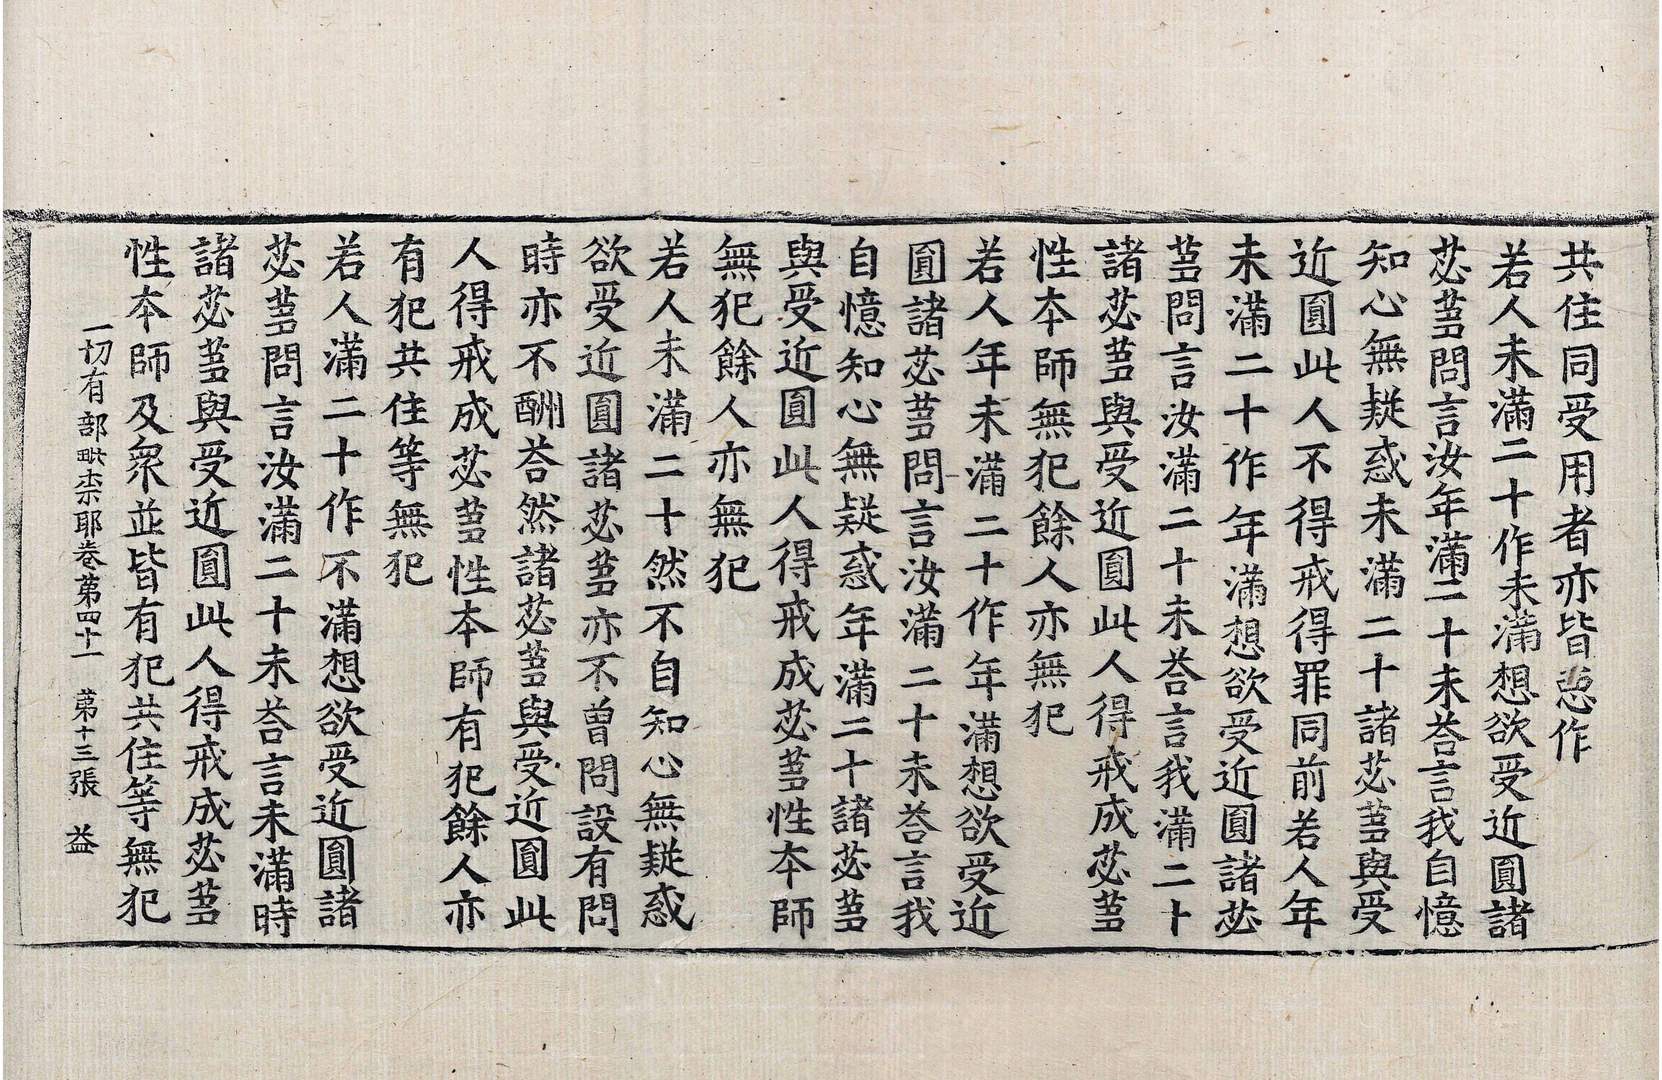 共住同受用者亦皆惡作
若人未滿二十作未滿想欲受近圓諸
苾蒭問言汝年滿二十未荅言我自憶
知心無疑惑未滿二十諸苾蒭與受
近圓此人不得戒得罪同前若人年
未滿二十作年滿想欲受近圓諸苾
蒭問言汝滿二十未荅言我滿二十
諸苾蒭與受近圓此人得戒成苾蒭
性本師無犯餘人亦無犯
若人年未滿二十作年滿想欲受近
圓諸苾蒭問言汝滿二十未荅言我
自憶知心無疑惑年滿二十諸苾蒭
與受近圓此人得戒成苾蒭性本師
無犯餘人亦無犯
若人未滿二十然不自知心無疑惑
欲受近圓諸苾蒭亦不曾問設有問
時亦不酬荅然諸苾蒭與受近圓此
人得戒成苾蒭性本師有犯餘人亦
有犯共住等無犯
若人滿二十作不滿想欲受近圓諸
苾蒭問言汝滿二十未荅言未滿時
諸苾蒭與受近圓此人得戒成苾蒭
性本師及衆並皆有犯共住等無犯
一切有部毗柰耶卷第四十一 第十三張 益